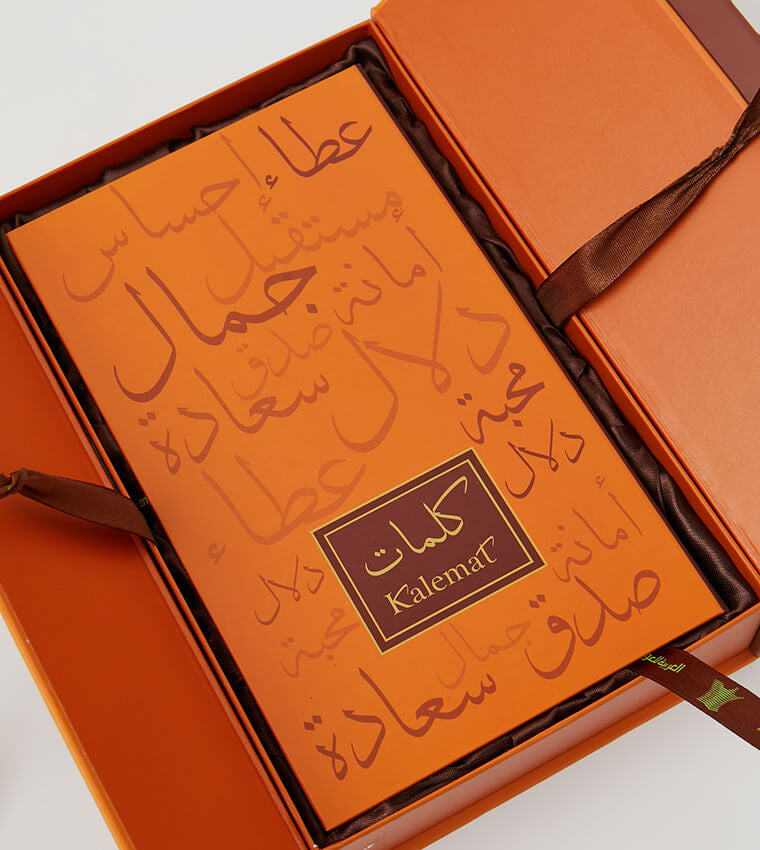 عطاء
إحساس
مستقبل
جمال
أمانة
صدق
دلال
سعادة
محبة
دلال
عطاء
كلمات
Kalemat
أمانة
دلال
محبة
صدق
جمال
سعادة